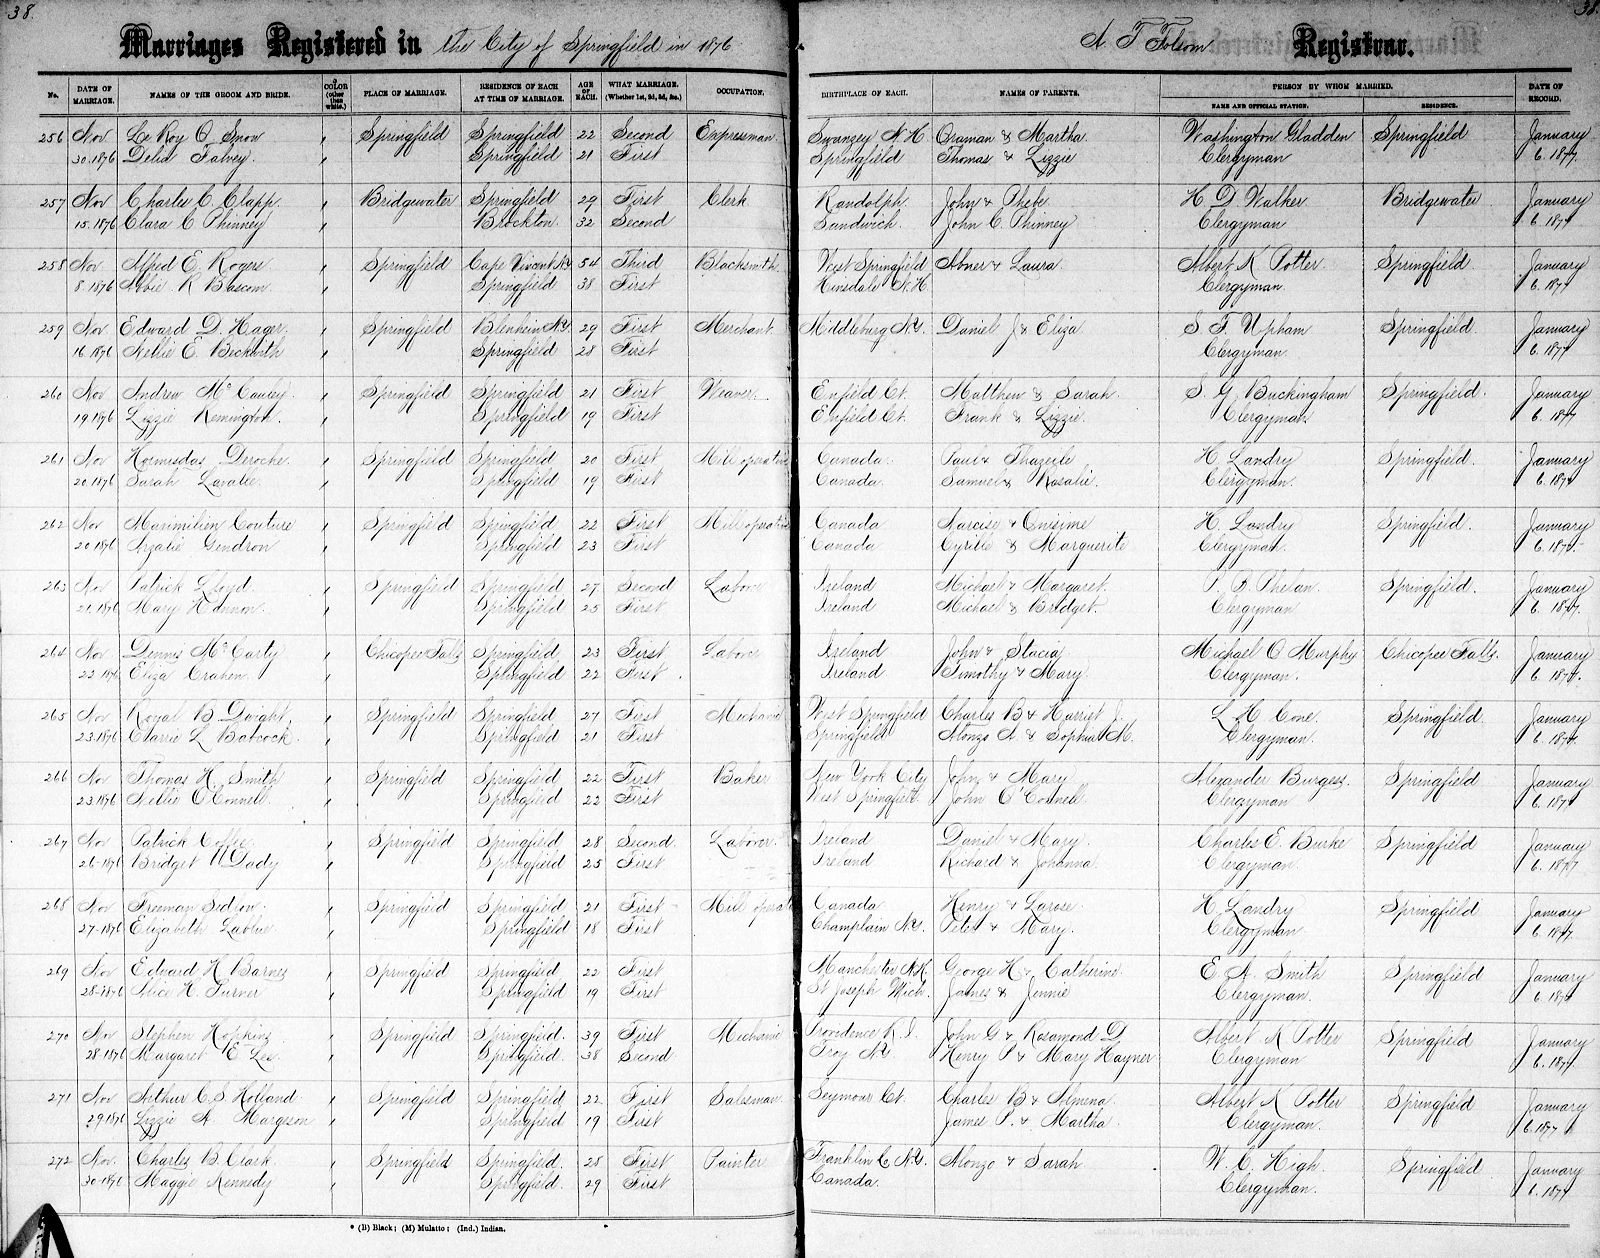 38.
38.
Marriages Registered in the City of Springfield in 1876
A. T. Folsom Registrar.
No. DATE OF MARRIAGE. NAMES OF THE GROOM AND BRIDE. COLOR (other than white.) PLACE OF MARRIAGE. RESIDENCE OF EACH AT TIME OF MARRIAGE. AGE OF EACH. WHAT MARRIAGE. (Whether 1st, 2d, 3d, &c.) OCCUPATION. BIRTHPLACE OF EACH. NAMES OF PARENTS. PERSON BY WHOM MARRIED. NAME AND OFFICIAL STATION. RESIDENCE. DATE OF RECORD.
256 Nov Le Roy O. Snow Springfield Springfield 22 Second Expressman Swanzey N.H. Oraman & Martha Washington Gladden Springfield January
30.1876 Delia Falvey. Springfield 21 First Springfield Thomas & Lizzie Clergyman 6.1877.
257 Nov Charles C. Clapp Bridgewater Springfield 29 First Clerk Randolph John & Phebe H. D. Walker Bridgewater January
15.1876 Clara C Phinney Brockton 32 Second Sandwich. John C. Phinney Clergyman 6.1877
258 Nov Alfred E. Rogers Springfield Cape Vincent N.Y. 54 Third Blacksmith West Springfield Abner & Laura Albert K Potter. Springfield. January
8.1876 Abbie R Bascom Springfield 38 First Hinsdale N.H. Clergyman. 6.1877
259 Nov Edward D. Hager. Springfield Blenheim N.Y. 29 First Merchant Middleburg N.Y. Daniel J & Eliza S. F. Upham Springfield. January
16.1876 Nellie E. Beckwith Springfield 28 First Clergyman 6.1877
260 Nov Andrew McCauley. Springfield Springfield 21 First Weaver. Enfield Ct. Matthew & Sarah. S. G. Buckingham Springfield. January
19.1876 Lizzie Remington. Springfield 19 First Enfield Ct. Frank & Lizzie. Clergyman. 6.1877
261 Nov Hormisdas Deroche. Springfield Springfield 20 First Mill operative Canada. Paul & H. Landry Springfield. January
20.1876 Sarah Lavalee. Springfield 19 First Canada. Samuel & Rosalie. Clergyman. 6.1877
262 Nov Maximilien Couture Springfield Springfield 22 First Mill operative Canada Narcise & Onisime H. Landry Springfield. January
20.1876 Azalie Gendron Springfield 23 First Canada Cyrille & Marguerite Clergyman. 6.1877
263 Nov Patrick Lloyd. Springfield Springfield 27 Second Laborer Ireland Michael & Margaret. P. B. Phelan. Springfield. January
21.1876 Mary Hannon. Springfield 25 First Ireland Michael & Bridget. Clergyman 6.1877.
264 Nov Dennis McCarty Chicopee Falls Springfield 23 First Laborer Ireland John & Stacia Michael O Murphy Chicopee Falls. January
22.1876 Eliza Crahen Springfield 22 First. Ireland Timothy & Mary. Clergyman. 6.1877.
265 Nov Royal B. Dwight. Springfield Springfield, 27 First Mechanic West Springfield Charles B & Harriet J. L. H. Cone. Springfield. January
23.1876 Carrie L Babcock. Springfield 21 First Springfield Alonzo A. & Sophia M. Clergyman. 6.1877
266 Nov Thomas H. Smith Springfield Springfield 22 First Baker New York City John & Mary Alexander Burgess. Springfield January
23.1876 Nellie O'Connell. Springfield 22 First West Springfield John O'Connell. Clergyman 6.1877
267 Nov Patrick Coffee. Springfield Springfield 28 Second. Laborer. Ireland Daniel & Mary. Charles E. Burke Springfield January
26.1876 Bridget Springfield 25 First. Ireland Richard & Johanna. Clergyman. 6.1877
268 Nov Freeman Springfield Springfield 21 First Mill operative Canada Henry & Larose. H. Landry Springfield January
27.1876 Elizabeth Lablue. Springfield 18 First Champlain N.Y. Peter & Mary. Clergyman. 6.1877.
269 Nov Edward H. Barnes Springfield Springfield. 22 First Manchester N.H. George H. & Catherine. E. A. Smith Springfield January
28.1876 Alice H. Turner Springfield 19 First St Joseph Mich. James & Jennie Clergyman. 6.1877
270 Nov Stephen Hopkins. Springfield Springfield. 39 First Mechanic Providence R.I. John G & Rosamond D. Albert K Potter Springfield January
28.1876 Margaret E Lee. Springfield 38 Second. Troy N.Y. Henry P & Mary Hayner Clergyman 6.1877.
271 Nov Arthur C. S. Holland. Springfield Springfield 22 First Salesman. Seymour Ct. Charles B & Almena. Albert K Potter Springfield January
29.1876 Lizzie A. Margeson Springfield 19 First James P. & Martha. Clergyman. 6.1877
272 Nov. Charles B. Clark. Springfield Springfield. 28 First Painter Franklin Co N.Y. Alonzo & Sarah W. C. High. Springfield January
30.1876 Maggie Kennedy Springfield. 29 First. Canada. Clergyman. 6.1877
* (B) Black; (M) Mulatto; (Ind.) Indian.